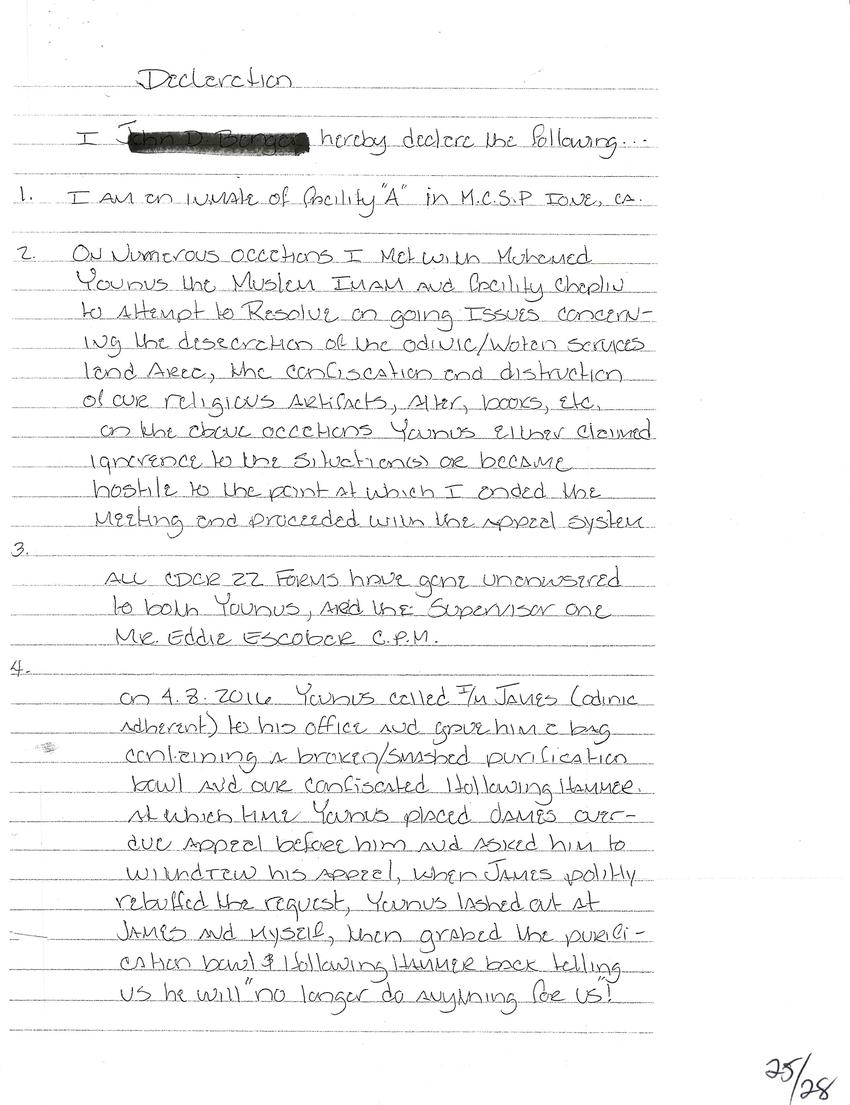 Declaration
I hereby declare the following...
1. I AM an inmate of facility "A" in M.C.S.P IONE, CA.
2. On Numerous occations I Met with Mohamed
Younus the Muslem IMAM and facility Chaplin
to Attempt to Resolve on going Issues concern-
ing the desecration of the odinic/Wotan services
land Area, the confiscation and distruction
of our religious Artifacts, Alter, books, Etc.
on the above occations Younus Either claimed
ignorence to the situation(s) or became
hostile to the point at which I ended the
Meeting and proceeded with the appeal system
3.
ALL CDCR 22 Forms have gone unanwsered
to both Younus, And the Supervisor one
Mr. Eddie Escobar C.P.M.
4.
on 4.8.2016 Younus called I/M James (odinic
Adherent) to his office and gave him a bag
containing a broken/smashed purification
bowl and our confiscated Hollowing Hammer.
At which time Younus placed James over-
due Appeal before him and asked him to
withdraw his appeal, when James politly
rebuffed the request, Younus lashed out at
JAMES and Myself, then grabed the purifi-
cation bowl & Hollowing Hammer back telling
us he will "no longer do anything for us"!
25/28